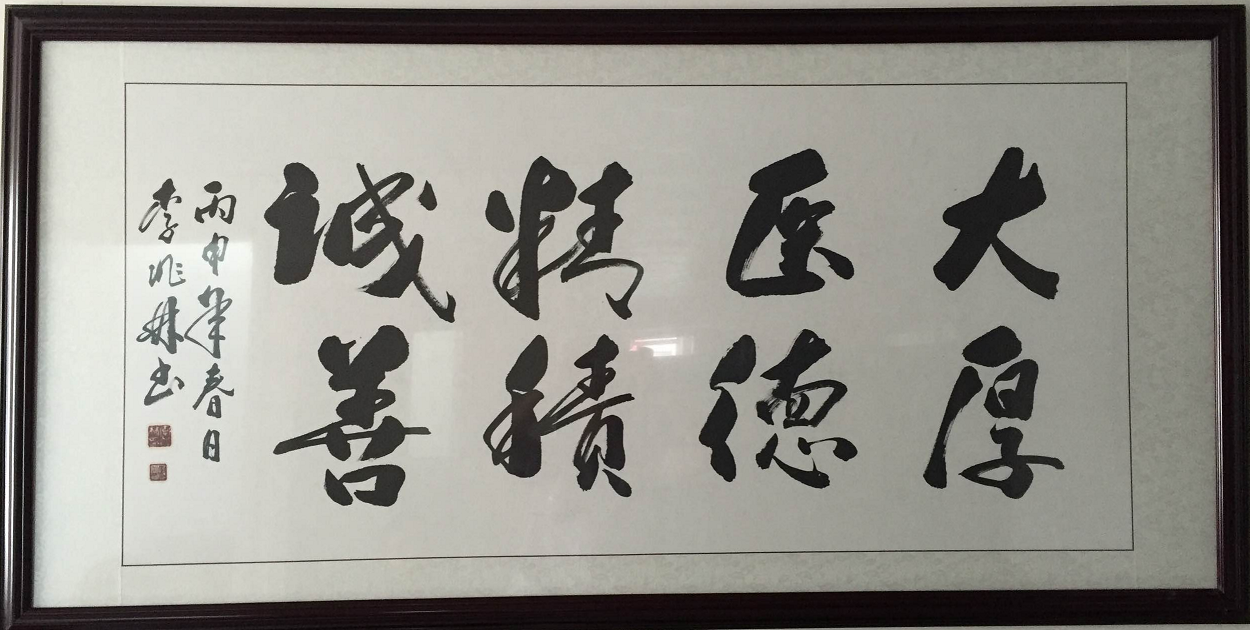 大医精诚
厚德積善
丙申年春日
李兆书